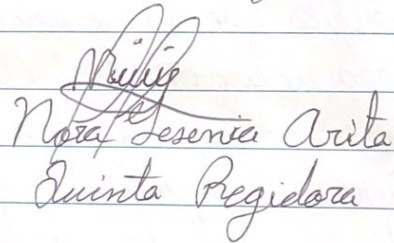 Nora Lesenia Arita
Quinta Regidora